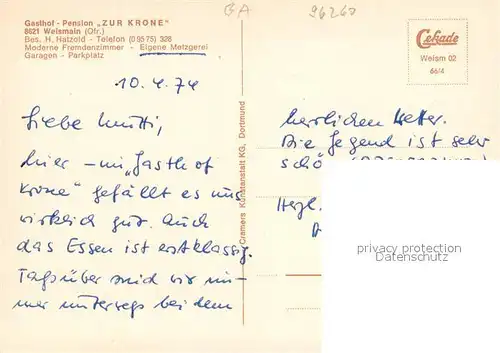 Gasthof - Pension „ZUR KRONE"
8621 Weismain (Ofr.)
Bes. H. Hatzold - Telefon (09575) 328
Moderne Fremdenzimmer - Eigene Metzgerei
Garagen - Parkplatz
GA
96260
Cekade
Weism 02
66/4
10.4.74
Liebe Mutti,
hier - im „Gasthof
Krone" gefällt es uns
wirklich gut. Auch
das Essen ist erstklassig.
Tagsüber sind wir im-
mer unterwegs bei dem
Cramers Kunstanstalt KG, Dortmund
herrlichen Wetter.
Die Gegend ist sehr
schö
Herzl.
privacy protection
Datenschutz